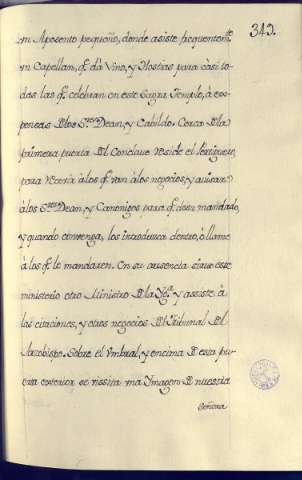 343.
un Aposento pequeño, donde asiste frequentemte.
un Capellan, q.e dà Vino, y Hostias para casi to-
das las q.e celebran en este Sagro. Templo, à ex-
pensas D los S.res Dean, y Cabildo. Cerca D la
primera puerta D l Conclave reside el Pertiguero,
para à los q.e van à los negocios, y avisar
à los S.res Dean, y Canonigos para q.e den mandado,
y quando convenga, los introduzca dentro, ò llame
à los q.e lo mandaren. En su ausencia sirve este
ministerio otro Ministro D la Yg.a y assiste à
las citaciones, y otros negocios D l Tribunal D l
Arzobispo. Sobre el Umbral, y encima D esta pu-
erta exterior se una Ymagen D nuestra
Señora